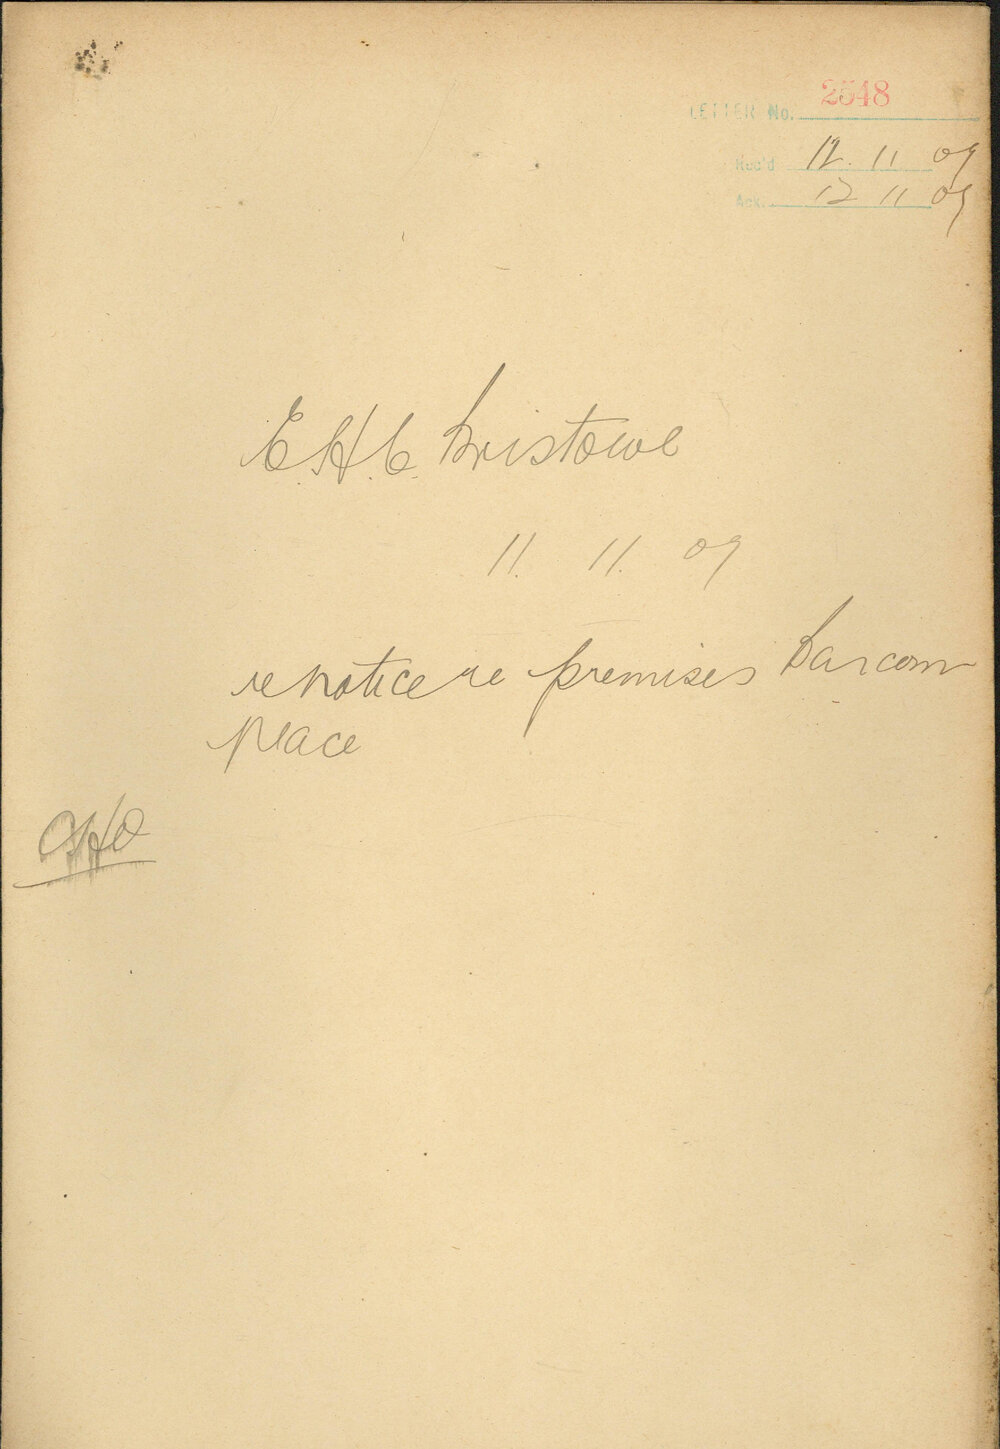 LETTER No. 2548
Rec'd 12. 11 09
Ack. 12 11 09
E. H. C. Bristowe
11. 11. 09
re notice re premises Barcom
place
CHO